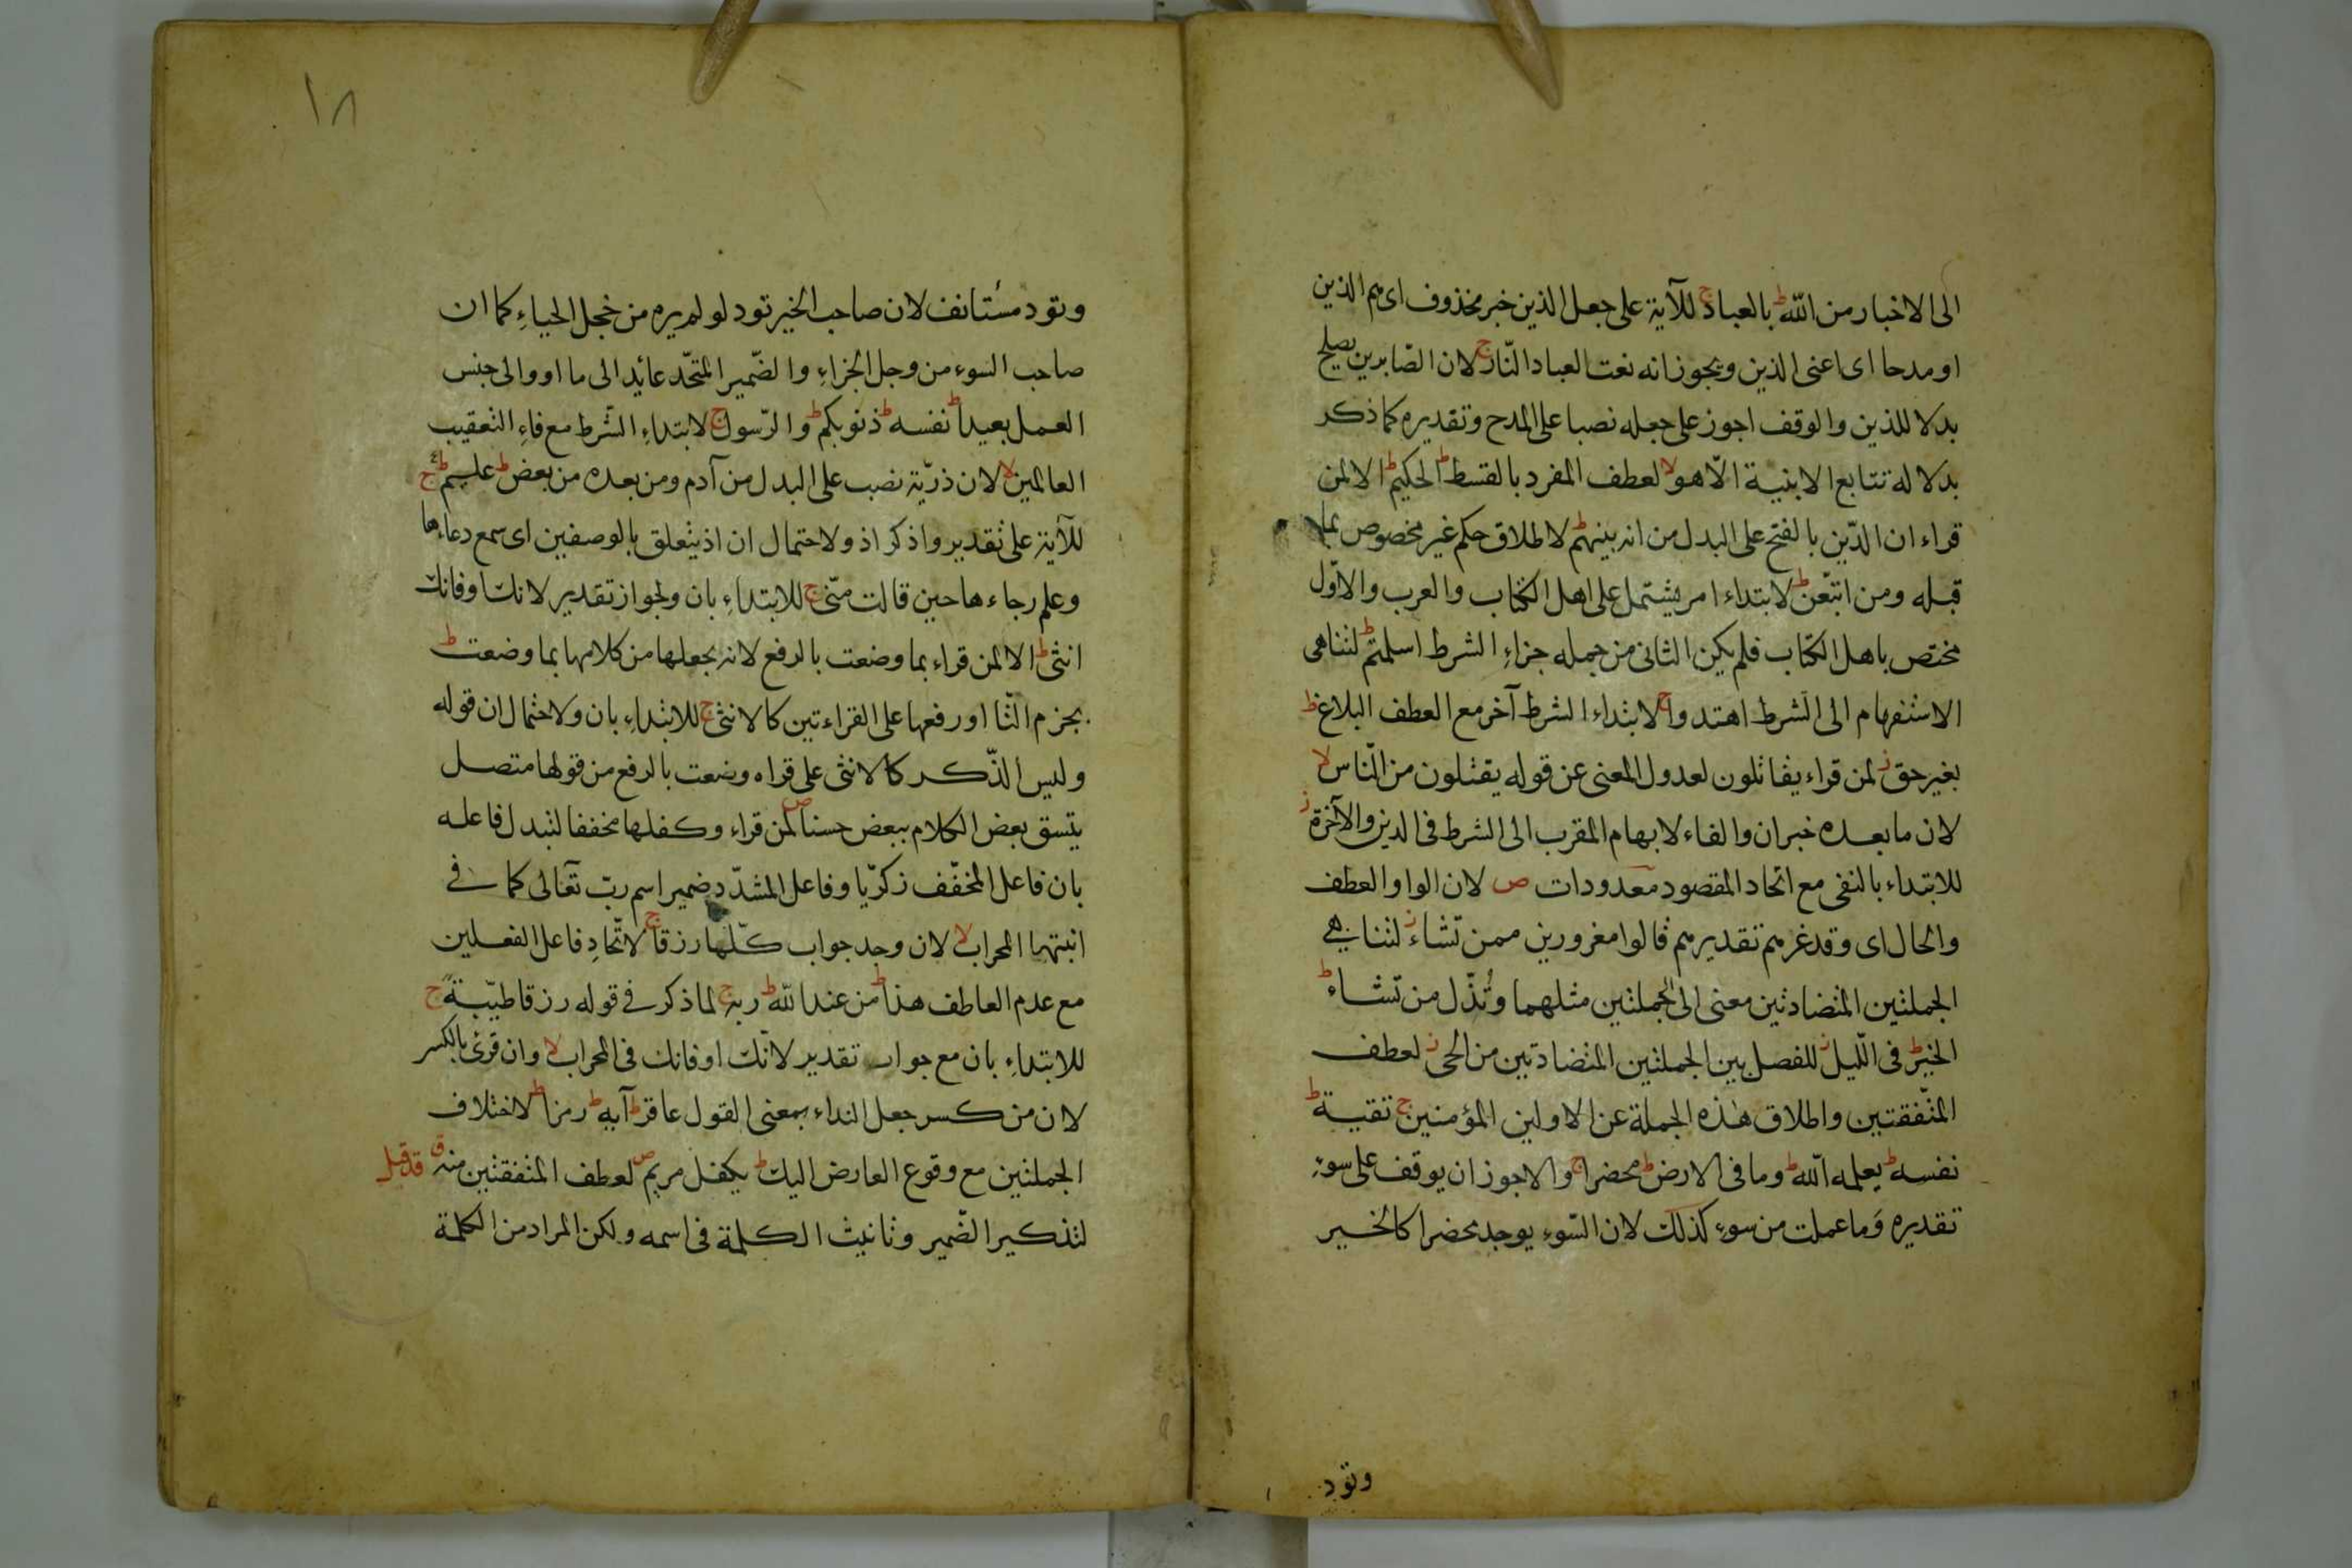 الى الاخبار من الله ط بالعباد ج للآية على جعل الذين خبر محذوف اى هم الذين
او مدحا اى اعنى الذين ويجوز انه نعت العباد النّار ج لان الصّابرين يصلح
بدلا للذين والوقف اجوز على جعله نصبا على المدح وتقديره كما ذكر
بدلالة تتابع الابنية الّا هو لا لعطف المفرد بالقسط ط الحكيم ط الا لمن
قراء ان الدّين بالفتح على البدل من انه بينهم ط لاطلاق حكم غير مخصوص بما
قبله ومن اتبعن ط لابتداء امر يشتمل على اهل الكتاب والعرب والاوّل
مختص باهل الكتاب فلم يكن الثانى من جمله جزاءِ الشرط اسلمتم ط لتناهى
الاستفهام الى الشرط اهتدوا ج لابتداء الشرط آخر مع العطف البلاغ ط
بغير حق ز لمن قراء يقاتلون لعدول المعنى عن قوله يقتلون من النّاس لا
لان ما بعده خبر ان والفاء لابهام المقرب الى الشرط فى الدين والآخرة ز
للابتداء بالنفى مع اتحاد المقصود معدودات ص لان الواو العطف
والحال اى وقد غرهم تقديرهم قالوا مغرورين ممن تشاء ز لتناهى
الجملتين المتضادتين معنى الى الجملتين مثلهما وتُذّل من تشاء ط
الخير ط فى اللّيل ز للفصل بين الجملتين المتضادتين من الحى ز لعطف
المتّفقتين واطلاق هذه الجملة عن الاولين المؤمنين ج تقية ط
نفسه ط يعلمه الله ط وما فى الارض ط محضرا ج والاجوز ان يوقف على سوءٍ
تقديره وَما عملت من سوء كذلك لان السّوء يوجد محضرا كالخير
وتود
١٨
وتود مستانف لان صاحب الخير تود لو لم يره من خجل الحياءِ كما ان
صاحب السوء من وجل الجزاءِ والضّمير المتحّد عائد الى ما او والى جنس
العمل بعيدا ط نفسه ط ذنوبكم ط والرّسول ج لابتداءِ الشّرط مع فاءِ التعقيب
العالمين لا لان ذرّية نصب على البدل من آدم ومن بعده من بعض ط عليم ط ج
للآية على تقدير واذكر اذ ولاحتمال ان اذ يتعلق بالوصفين اى سمع دعاءها
وعلم رجاءها حين قالت منّى ج للابتداءِ بان ولجواز تقدير لانك او فانك
انثى ط الا لمن قراء بما وضعت بالرفع لانه يجعلها من كلامها بما وضعت ط
بجزم التّا او رفعها على القراءتين كالانثى ج للابتداءِ بان ولاحتمال ان قوله
وليس الذّكر كالانثى على قراه وضعت بالرفع من قولها متصل
يتسق بعض الكلام ببعض حسنا ص لمن قراء وكفلها مخففا لتبدل فاعله
بان فاعل المخفّف زكريّا وفاعل المشدّد ضمير اسم ربّ تعالى كما فى
انبتها المحراب لا لان وجد جواب كلّها رزقا ج لاتّحادِ فاعل الفعلين
مع عدم العاطف هذا ط من عند الله ط ربه ج لما ذكر فى قوله رزقا طيّبة ج
للابتداءِ بان مع جواب تقدير لانّك او فانك فى المحراب لا وان قرئ بالكسر
لان من كسر جعل النداء بمعنى القول عاقر ط آية ط رمزا ط لاختلاف
الجملتين مع وقوع العارض اليك ط يكفل مريم ص لعطف المتفقتين منه ق قد قيل
لتذكير الضّمير وتانيث الكلمة فى اسمه ولكن المراد من الكلمة